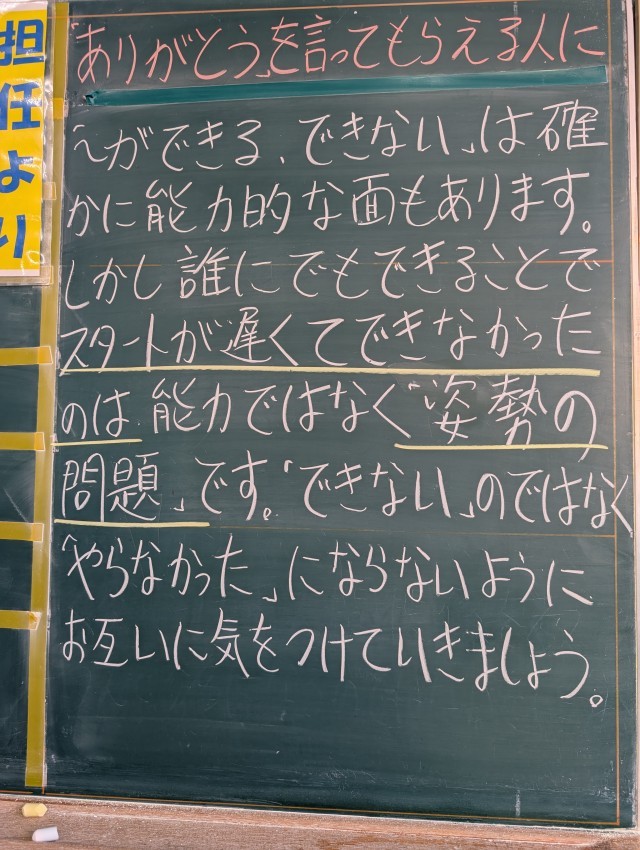 担任より
「ありがとう」を言ってもらえる人に
「~ができる、できない」は確
かに能力的な面もあります。
しかし誰にでもできることで
スタートが遅くてできなかった
のは能力ではなく「姿勢の
問題」です。「できない」のではなく
「やらなかった」にならないように
お互いに気をつけていきましょう。